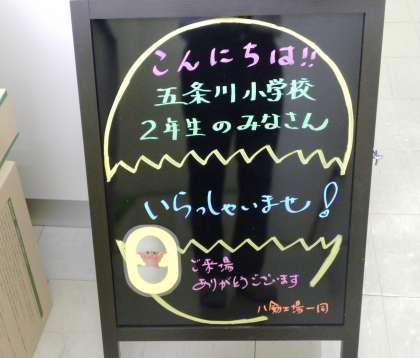 こんにちは!!
五条川小学校
2年生のみなさん
いらっしゃいませ!
ご来場
ありがとうございます
八剱工場一同